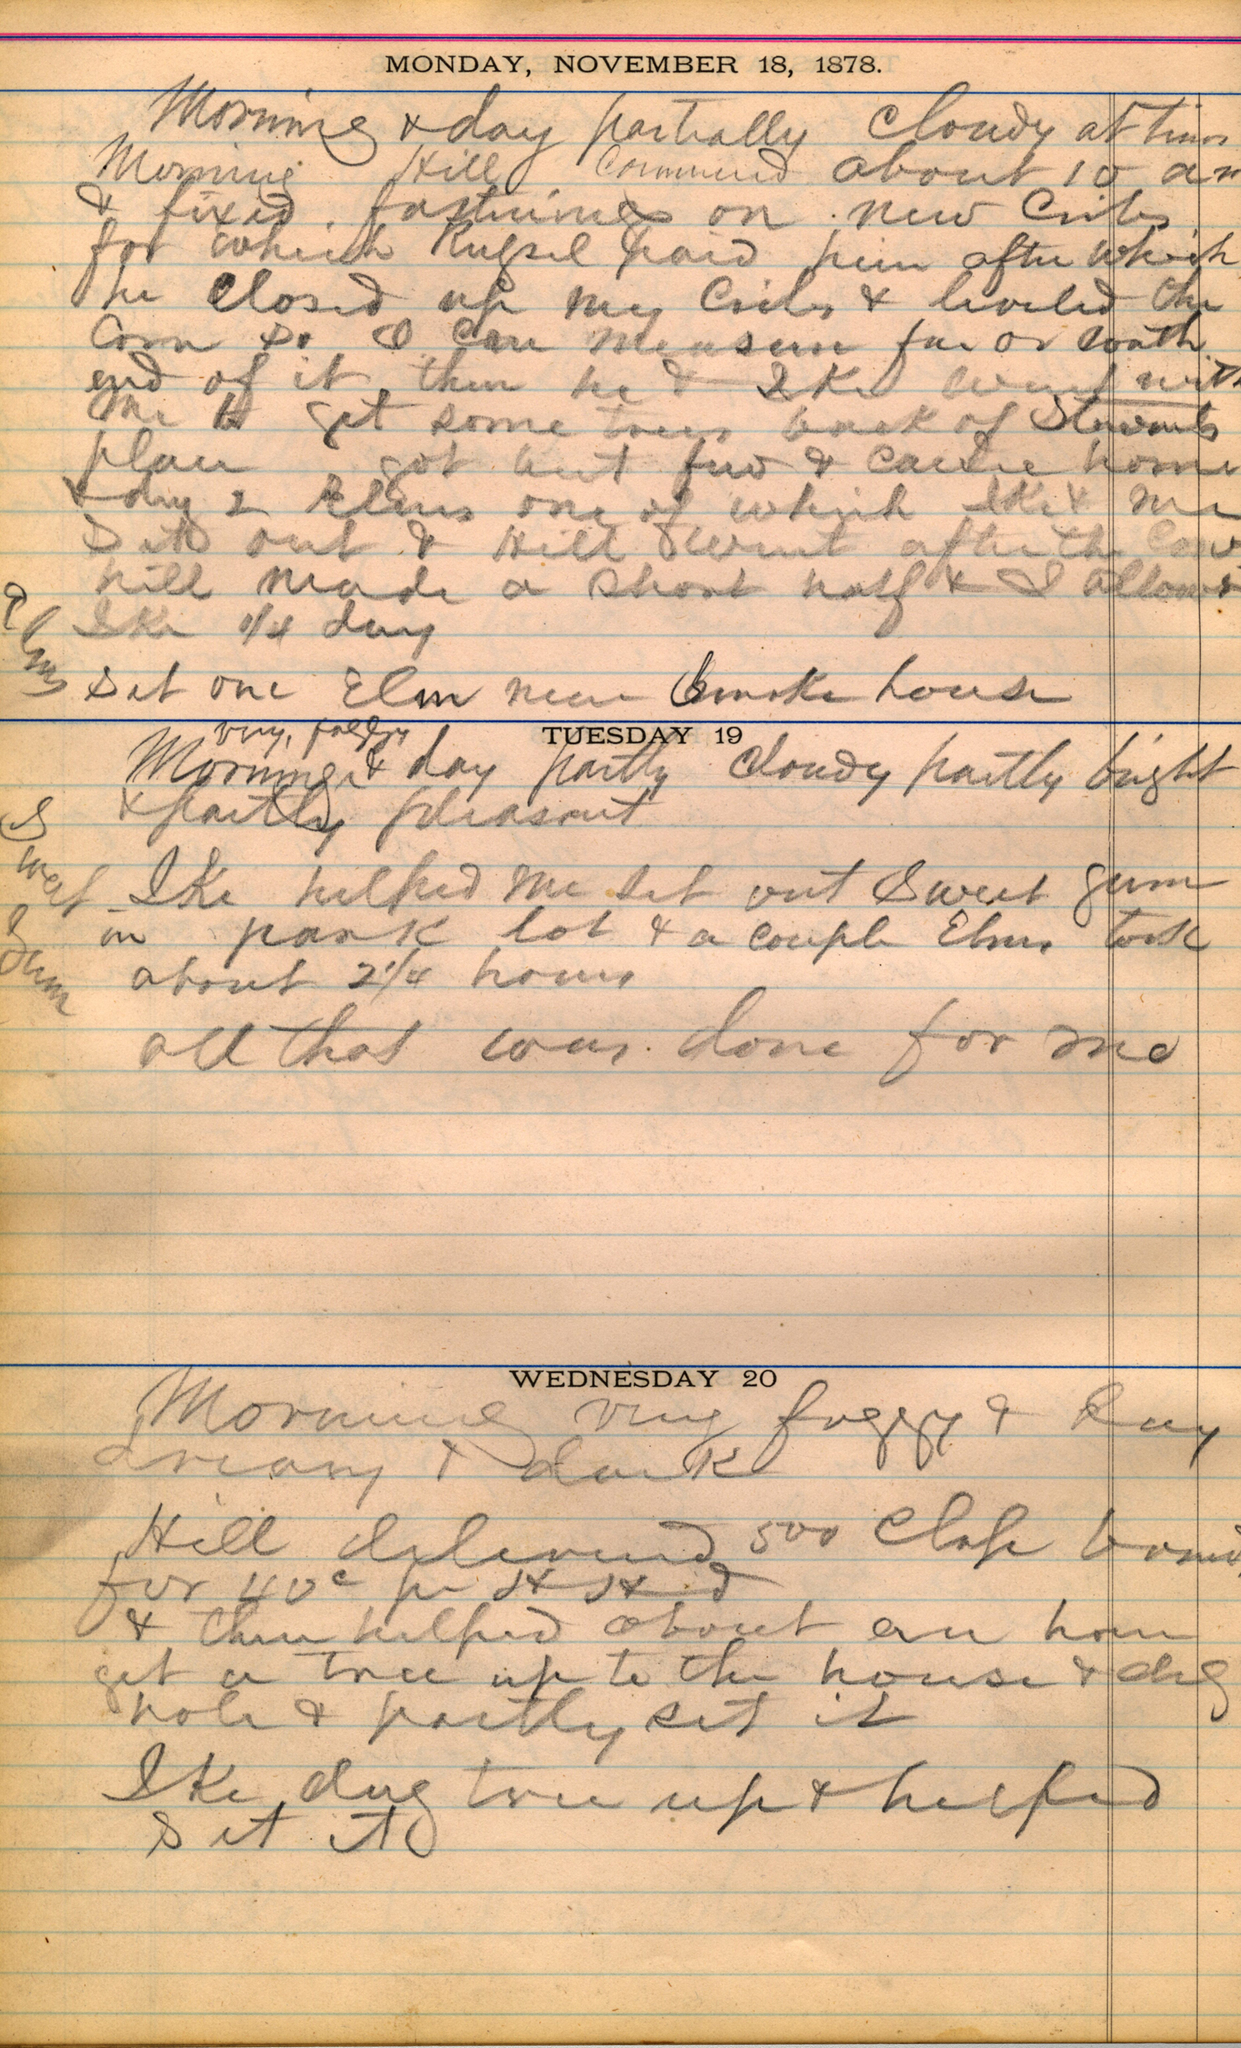 MONDAY, NOVEMBER 18, 1878.
Morning & day partially Cloudy at times
Morning Hill Commenced about 10 am
& fixed fastnings on new Cribs
for which paid him after which
he Closed up my Cribs & leveled the
Corn so I can measure south
end of it then he & Ike went with
me to get some trees back of Stewarts
place got but few & came home
& dug 2 Elms one of which Ike & me
Set out & Hill went after the Cow
hill made a short half & I allowed
Ike 1/4 day
Elms
Set one Elm near Smoke house
TUESDAY 19
very foggy
Morning & day partly Cloudy partly bright
& partly pleasant
Sweet Gum
Ike helped me set out Sweet gum
in park lot & a couple Elms took
about 2 1/4 hours
all that was done for me
WEDNESDAY 20
Morning very foggy & Day
dreary & dark
Hill delivered 500 Clap boards
for 40c per
& then helped about an hour
get a tree up to the house & dig
hole & partly set it
Ike dug tree up & helped
set it